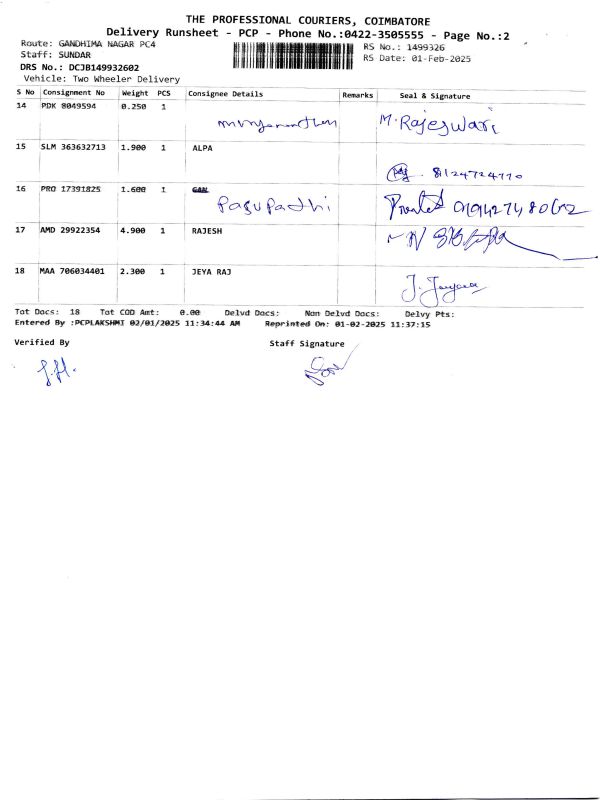 THE PROFESSIONAL COURIERS, COIMBATORE
Delivery Runsheet - PCP - Phone No.:0422-3505555 - Page No.:2
Route: GANDHIMA NAGAR PC4 RS No.: 1499326
Staff: SUNDAR RS Date: 01-Feb-2025
DRS No.: DCJB149932602
Vehicle: Two Wheeler Delivery
S No Consignment No Weight PCS Consignee Details Remarks Seal & Signature
14 PDK 8049594 0.250 1
M. Rajeswari
15 SLM 363632713 1.900 1 ALPA
8124724770
16 PRO 17391825 1.600 1
Pasupadhi
17 AMD 29922354 4.900 1 RAJESH
18 MAA 706034401 2.300 1 JEYA RAJ
Tot Docs: 18 Tot COD Amt: 0.00 Delvd Docs: Non Delvd Docs: Delvy Pts:
Entered By :PCPLAKSHMI 02/01/2025 11:34:44 AM Reprinted On: 01-02-2025 11:37:15
Verified By Staff Signature